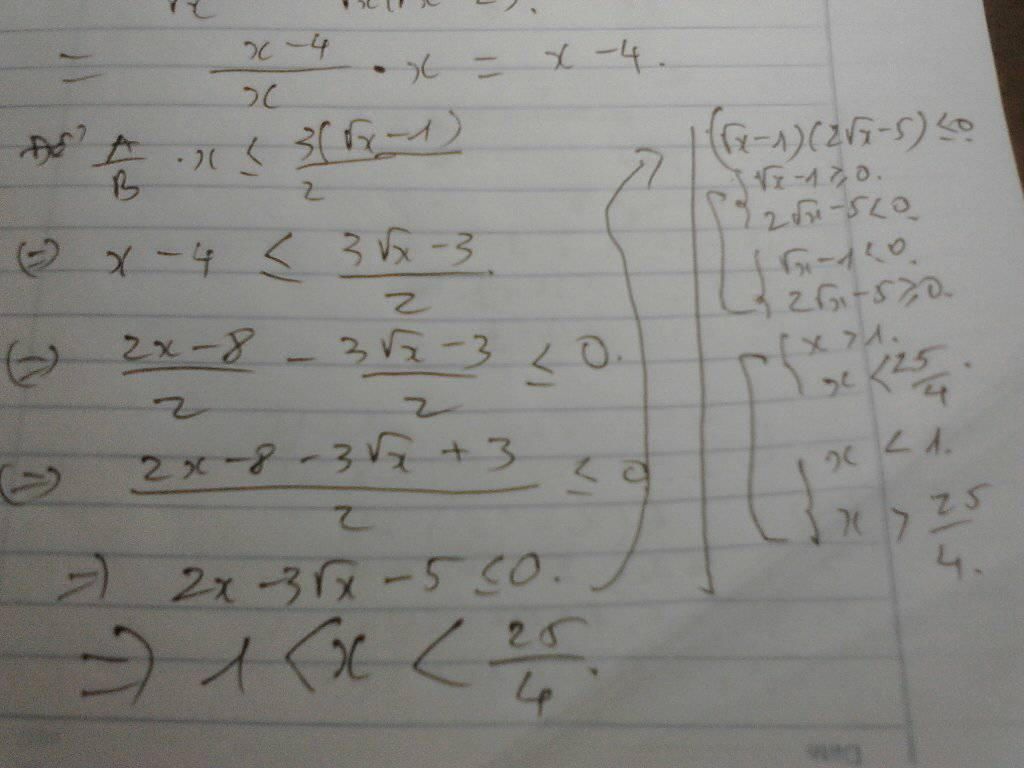 = \frac{x-4}{x} \cdot x = x - 4.
\frac{A}{B} . x \le \frac{3(\sqrt{x}-1)}{2}
(=) x - 4 \le \frac{3\sqrt{x}-3}{2}.
(=) \frac{2x-8}{2} - \frac{3\sqrt{x}-3}{2} \le 0.
(=) \frac{2x-8-3\sqrt{x}+3}{2} \le 0
=) 2x - 3\sqrt{x} - 5 \le 0.
=) 1 < x < \frac{25}{4}.
(\sqrt{x}-1)(2\sqrt{x}-5) \le 0
\sqrt{x}-1 \ge 0.
2\sqrt{x}-5 < 0.
\sqrt{x}-1 < 0.
2\sqrt{x}-5 \ge 0.
x > 1.
x < \frac{25}{4}.
x < 1.
x > \frac{25}{4}.